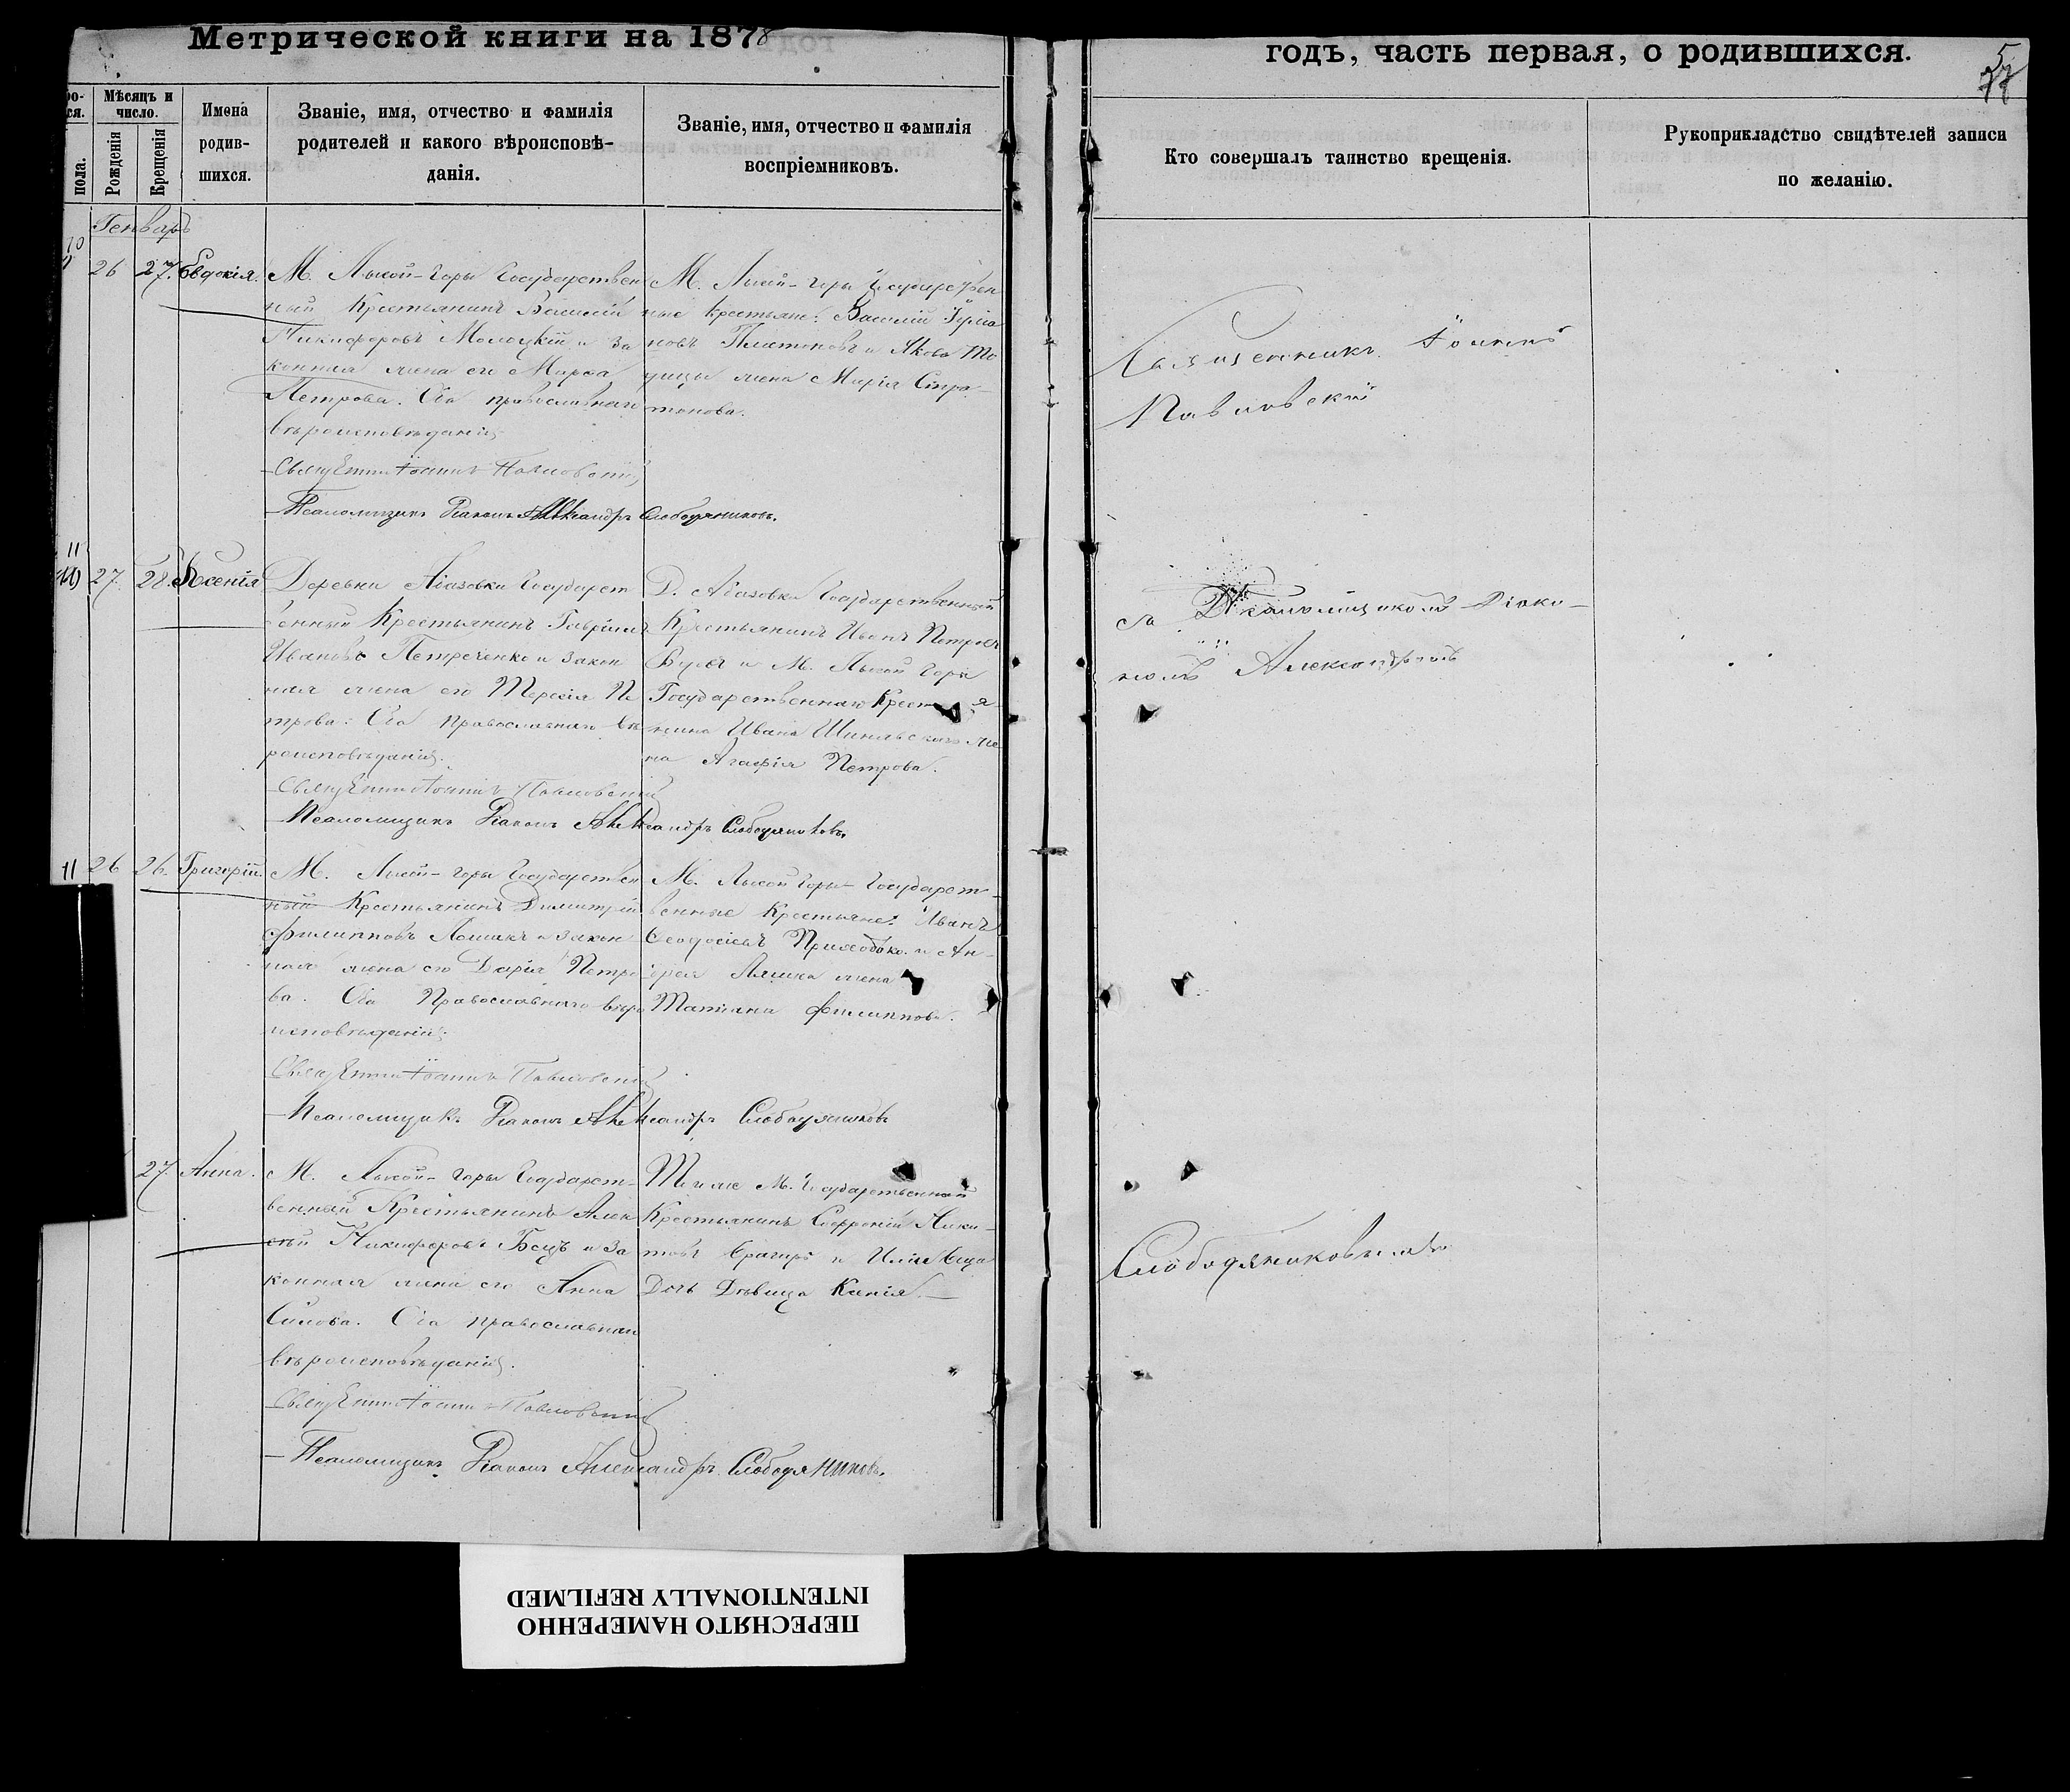 Метрической книги на 1878
годъ, часть первая, о родившихся.
57
Мѣсяцъ и число.
пола.
Рожденія
Крещенія
Имена родив-
шихся.
Званіе, имя, отчество и фамилія
родителей и какого вѣроисповѣ-
данія.
Званіе, имя, отчество и фамилія
воспріемниковъ.
Кто совершалъ таинство крещенія.
Рукоприкладство свидѣтелей записи
по желанію.
Генварь
10
26 27. Евдокія.
М. Лысой-Горы Государствен
ный Крестьянинъ Василій
Никифоровъ Молоцкій и за
конная жена его Марѳа
Петрова. Оба православнаго
вѣроисповѣданія
Священникъ Іоаннъ Павловскій
Псаломщикъ Діаконъ Александръ Слободяниковъ.
М. Лысой-Горы Государствен
ные крестьяне: Василій
новъ Платоновъ и Якова
жена Марія
Священникъ Іоаннъ
Павловскій
11
27. 28. Ксенія
Деревни Абазовки Государст
венный Крестьянинъ Гавріилъ
Ивановъ Петреченко и закон
ная жена его Пе
трова. Оба православнаго вѣ
роисповѣданія.
Священникъ Іоаннъ Павловскій
Псаломщикъ Діаконъ Александръ Слободяниковъ.
Д. Абазовки Государственный
Крестьянинъ Иванъ Петровъ
и М. Лысой Горы
Государственнаго Крестья
нина Ивана же
на Агафія Петрова.
съ Псаломщикомъ Діако-
номъ Александромъ
11 26 26. Григорій.
М. Лысой-Горы Государствен
ный Крестьянинъ Димитрій
Филипповъ Ляшко и закон
ная жена его Дарія Петро
ва. Оба Православнаго вѣро
исповѣданія
Священникъ Іоаннъ Павловскій
Псаломщикъ Діаконъ Александръ Слободяниковъ
М. Лысой Горы Государст
венные Крестьяне: Иванъ
Ѳеодосіевъ Приходько и Ан-
дрея Ляшка жена
Татіана Филиппова.
27. Анна.
М. Лысой-Горы Государст-
венный Крестьянинъ Алек
сѣй Никифоровъ и за
конная жена его Анна
Симова. Оба православнаго
вѣроисповѣданія.
Священникъ Іоаннъ Павловскій
Псаломщикъ Діаконъ Александръ Слободяниковъ.
Того же М. Государственный
Крестьянинъ Софроній Ники-
товъ и
Дочь Дѣвица
Слободяниковымъ
ПЕРЕСНЯТО НАМЕРЕННО
INTENTIONALLY REFILMED